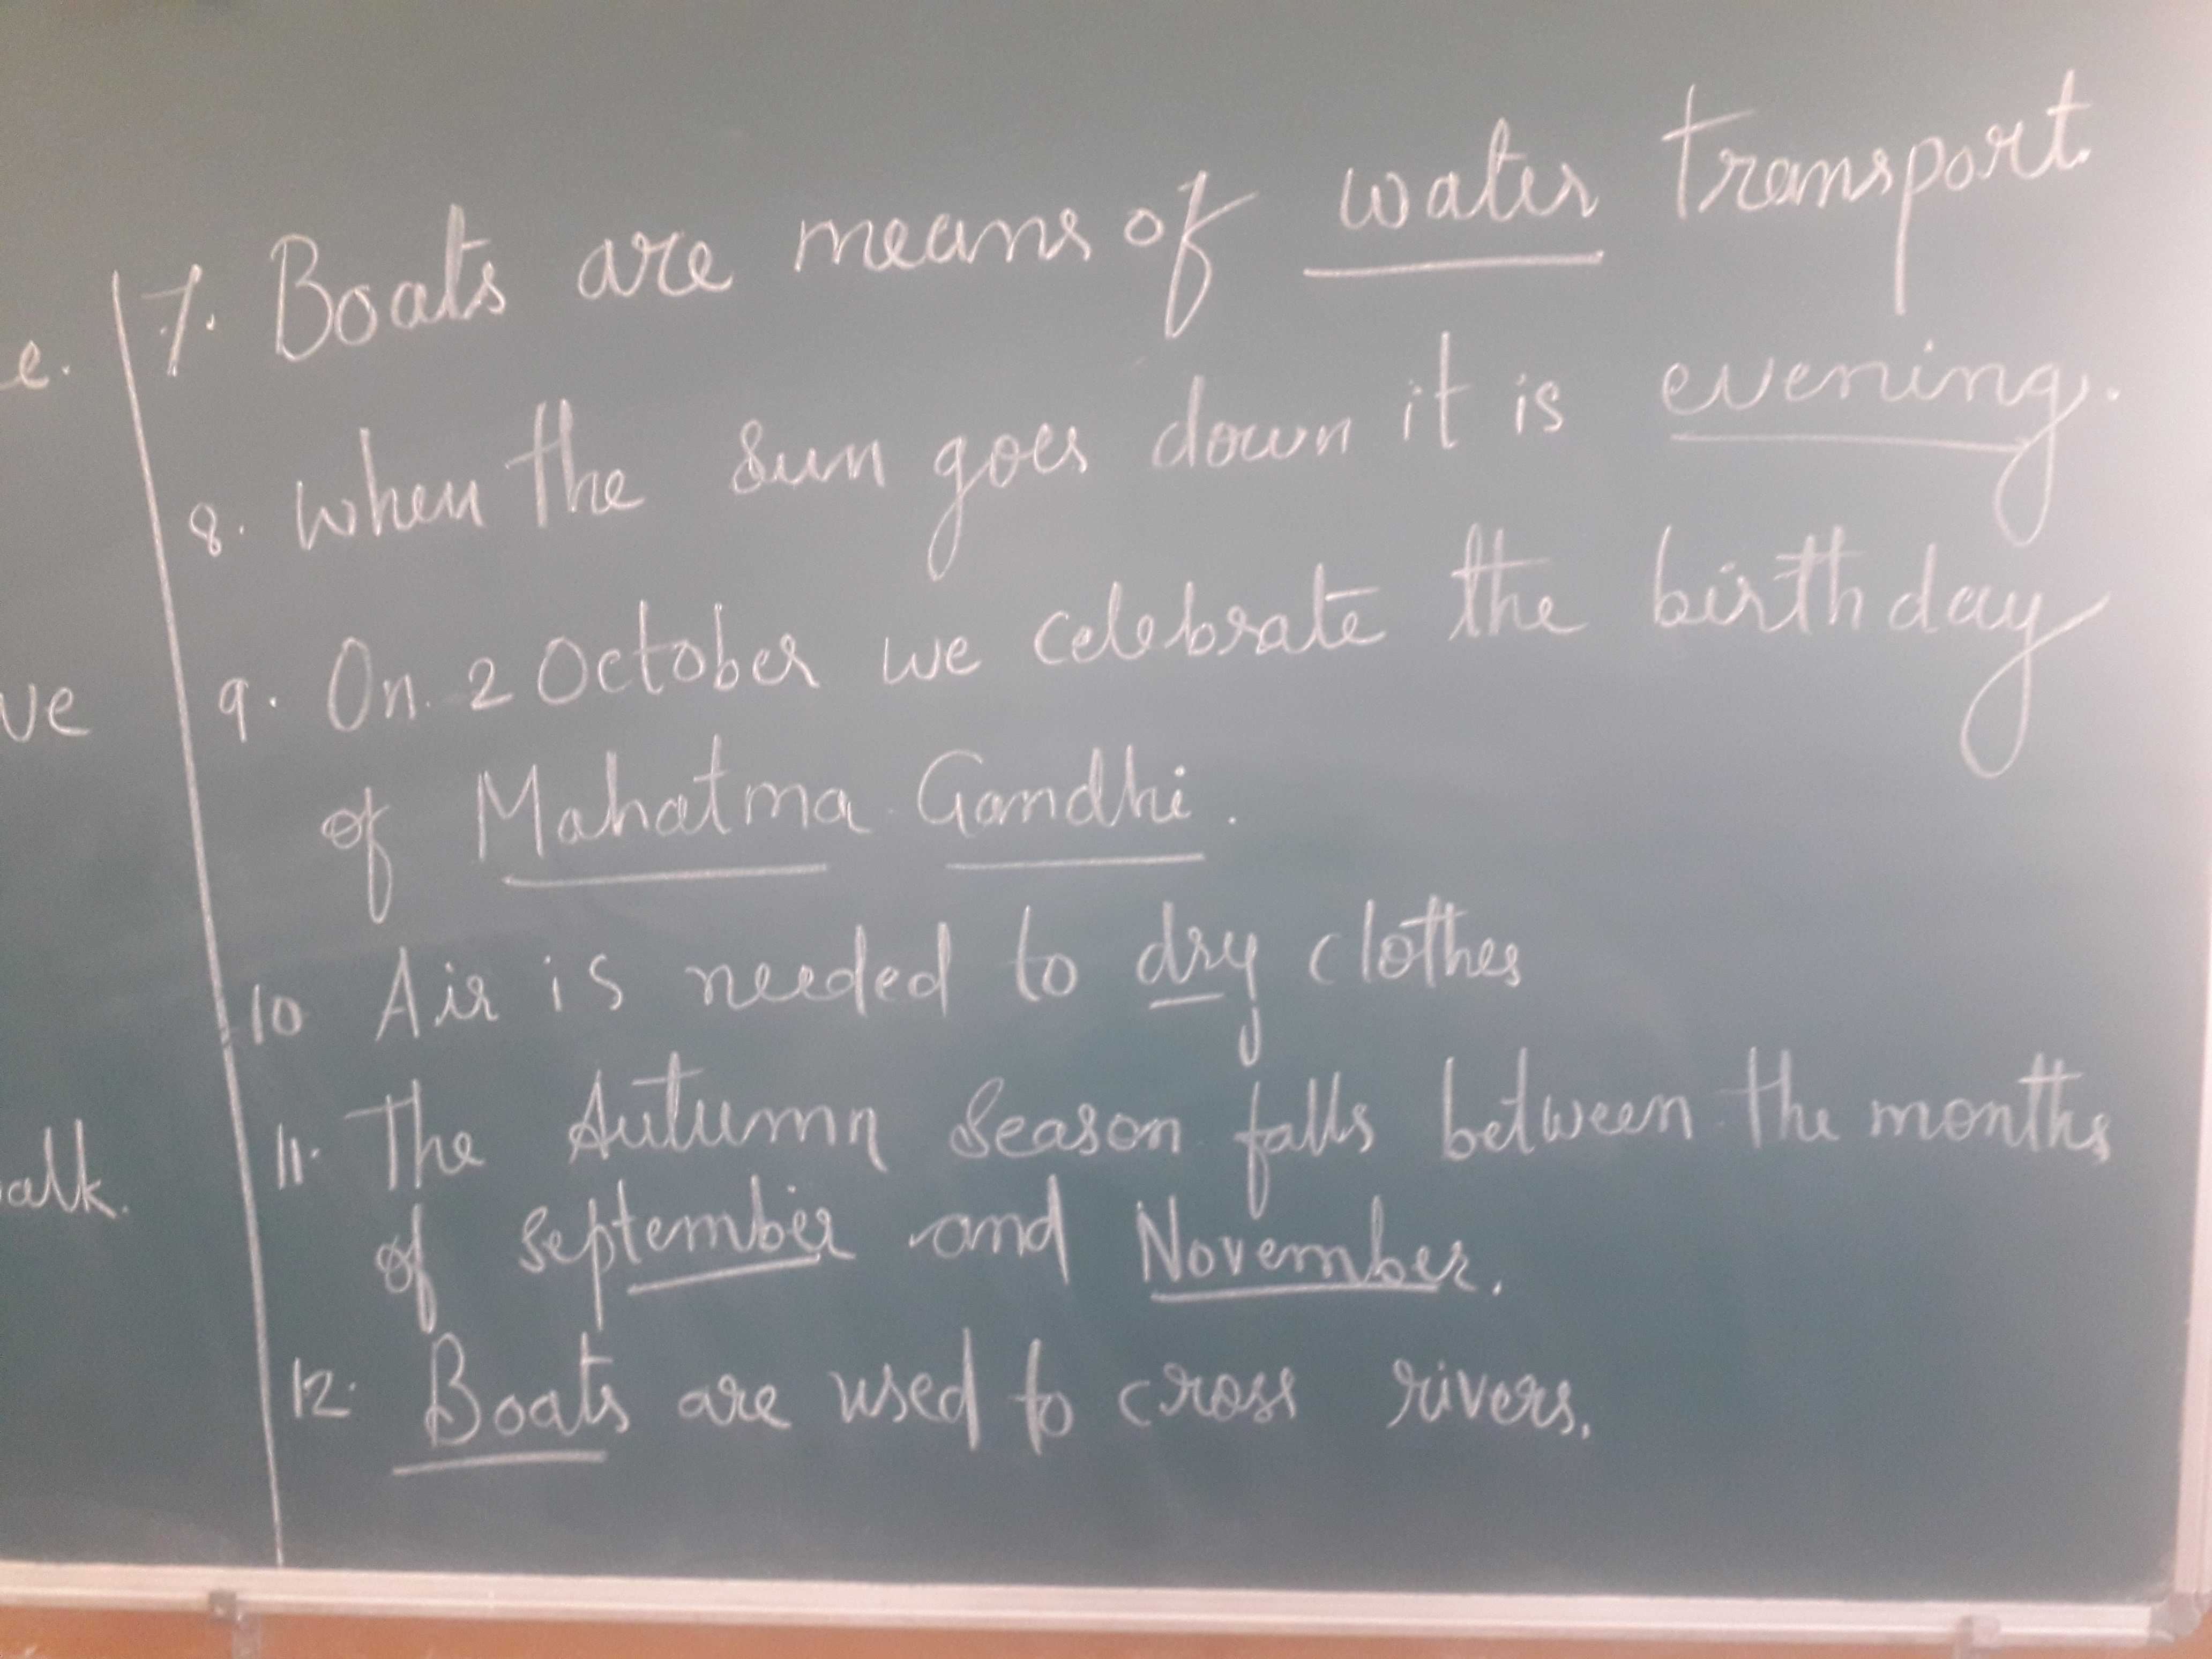 e.
ve
alk.
7. Boats are means of water transport.
8. When the Sun goes down it is evening.
9. On 2 October we celebrate the birthday
of Mahatma Gandhi.
10 Air is needed to dry clothes
11. The Autumn Season falls between the months
of September and November.
12. Boats are used to cross rivers.